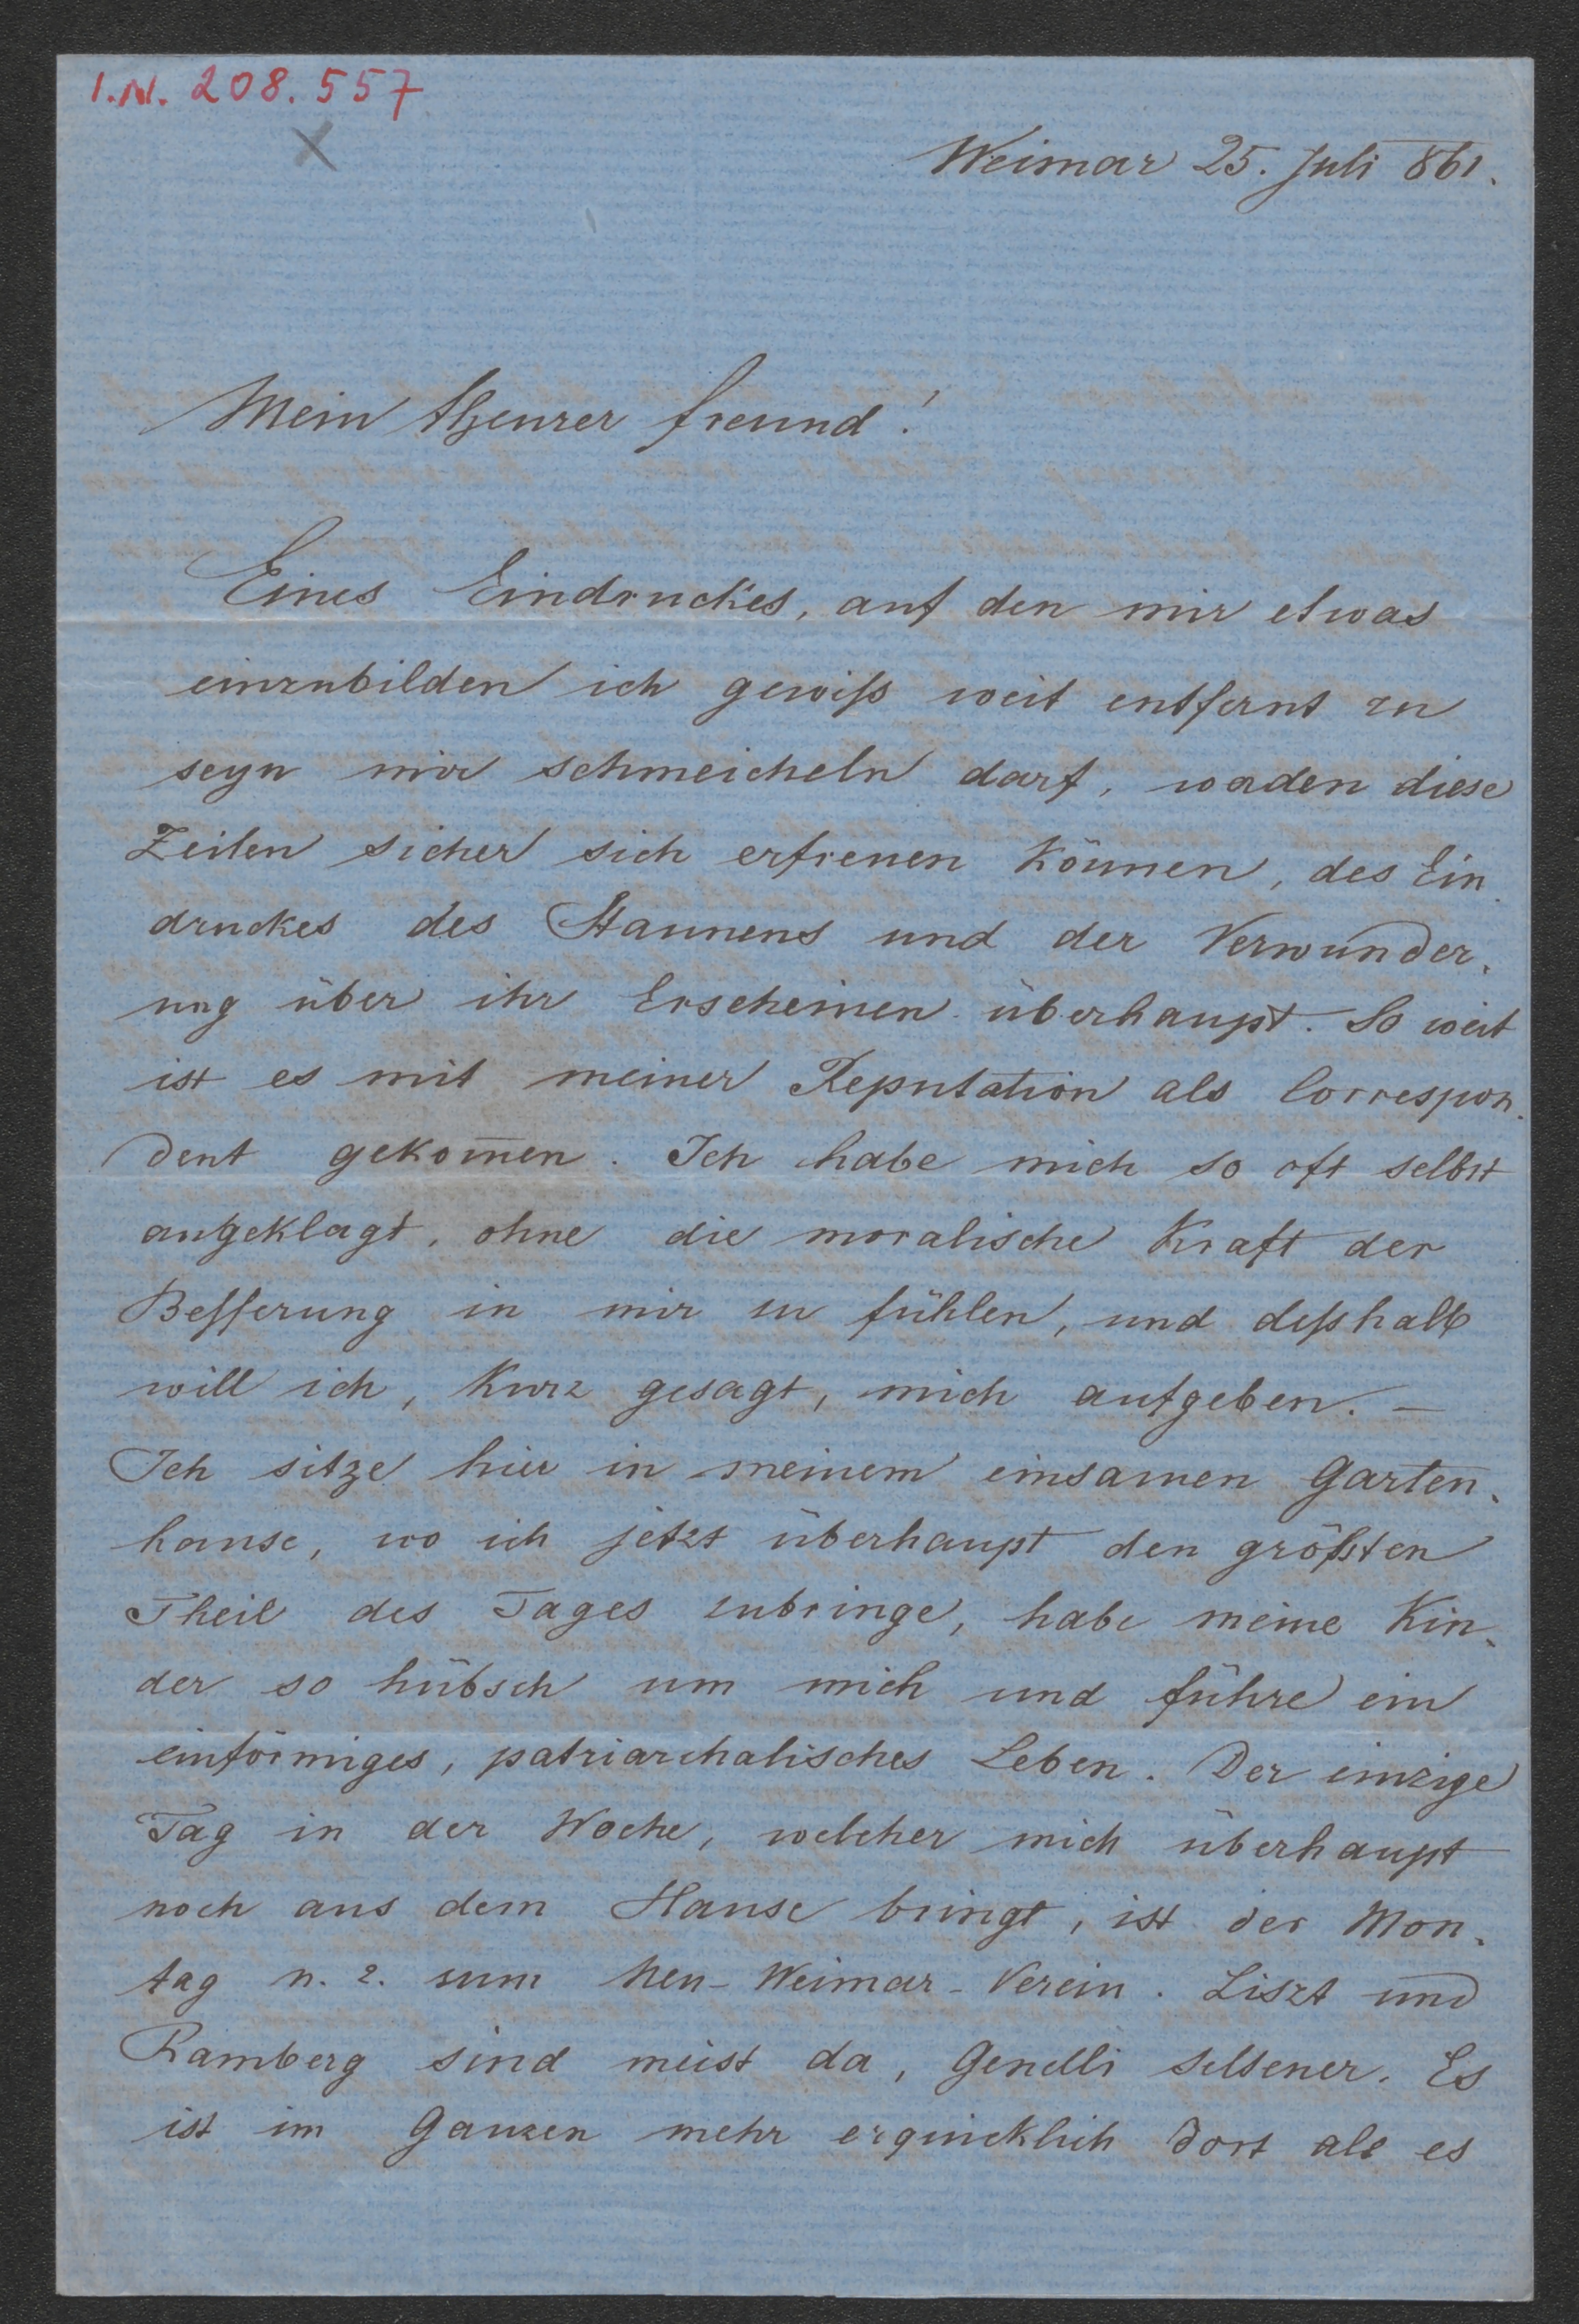 I.N. 208.557
Weimar 25. Juli 861.
Mein theurer Freund!
Eines Eindruckes, auf den mir etwas
einzubilden ich gewiß weit entfernt zu
seyn mir schmeicheln darf, werden diese
Zeilen sicher sich erfreuen können, des Ein-
druckes des Staunens und der Verwunder-
ung über ihr Erscheinen überhaupt. So weit
ist es mit meiner Reputation als Correspon-
dent gekom̅en. Ich habe mich so oft selbst
angeklagt, ohne die moralische Kraft der
Besserung in mir zu fühlen, und deßhalb
will ich, kurz gesagt, mich aufgeben. –
Ich sitze hier in meinem einsamen Garten-
hause, wo ich jetzt überhaupt den größten
Theil des Tages zubringe, habe meine Kin-
der so hübsch um mich und führe ein
einförmiges, patriarchalisches Leben. Der einzige
Tag in der Woche, welcher mich überhaupt
noch aus dem Hause bringt, ist der Mon-
tag u. z. zum Neu-Weimar-Verein. Liszt und
Ramberg sind meist da, Genelli seltener. Es
ist im Ganzen mehr erquicklich dort als es